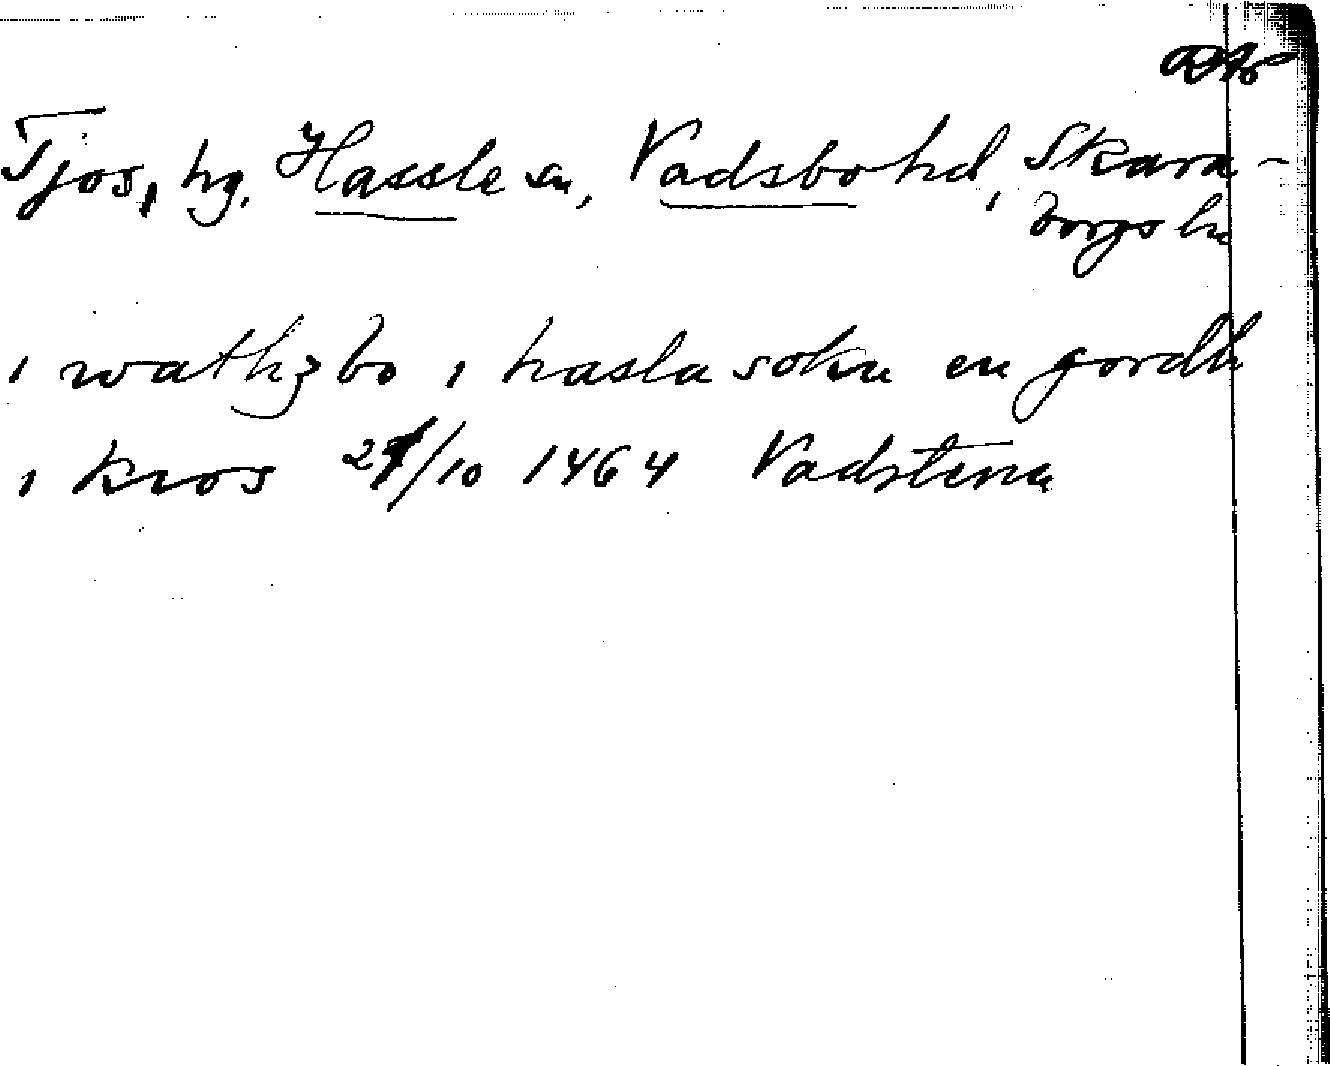 Tjos, hg, Hassle sn, Vadsbo hd, Skara-
borgs ln
i wathzbo i hasla sokn en gordh
i kios /10 1464 Vadstena